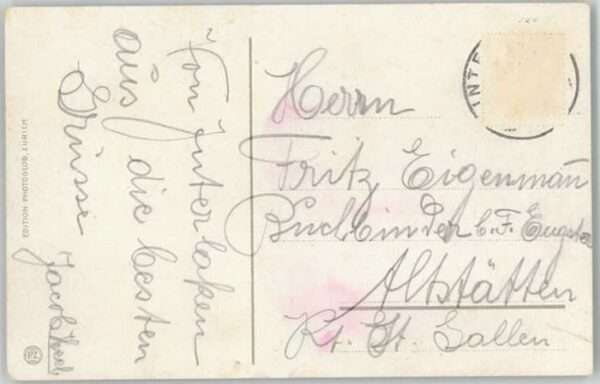 Von Interlaken
aus die besten
Grüsse
Jacob
EDITION PHOTOGLOB, ZÜRICH
PZ
INTE
Herrn
Fritz Eigenmañ
Buchbinder b. F. Eugster
Altstätten
Kt. St. Gallen